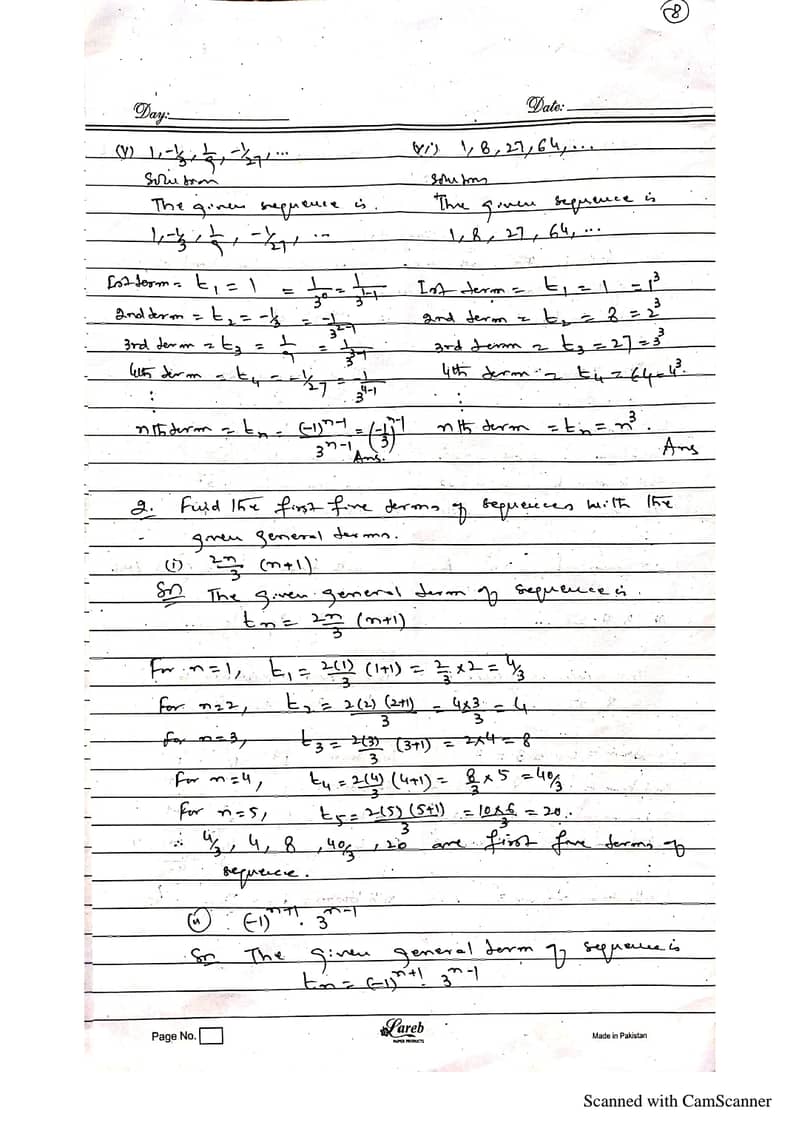 8
Day:
Date:
(V) 1, -1/3, 1/9, -1/27, ...
Solution
The given sequence is.
1, -1/3, 1/9, -1/27, ...
Ist term = t₁ = 1 = 1/3⁰ = 1/3¹⁻¹
2nd term = t₂ = -1/3 = -1/3²⁻¹
3rd term = t₃ = 1/9 = 1/3³⁻¹
4th term = t₄ = -1/27 = -1/3⁴⁻¹
:
nth term = tₙ = (-1)ⁿ⁻¹/3ⁿ⁻¹ = (-1/3)ⁿ⁻¹
Ans.
vi) 1, 8, 27, 64, ...
Solution
The given sequence is
1, 8, 27, 64, ...
Ist term = t₁ = 1 = 1³
2nd term = t₂ = 8 = 2³
3rd term = t₃ = 27 = 3³
4th term = t₄ = 64 = 4³.
:
nth term = tₙ = n³.
Ans
2. Find the first five terms of sequences with the
given general terms.
(i) 2n/3 (n+1)
Sol The given general term of sequence is.
tn = 2n/3 (n+1)
For n=1, t₁ = 2(1)/3 (1+1) = 2/3 × 2 = 4/3
For n=2, t₂ = 2(2)(2+1)/3 = 4×3/3 = 4
For n=3, t₃ = 2(3)/3 (3+1) = 2×4 = 8
For n=4, t₄ = 2(4)/3 (4+1) = 8/3 × 5 = 40/3
For n=5, t₅ = 2(5)(5+1)/3 = 10×6/3 = 20.
∴ 4/3, 4, 8, 40/3, 20 are first five terms of
sequence.
(ii) (-1)ⁿ⁺¹. 3ⁿ⁻¹
Sol The given general term of sequence is
tn = (-1)ⁿ⁺¹. 3ⁿ⁻¹
Page No.
Lareb
PAPER PRODUCTS
Made in Pakistan
Scanned with CamScanner